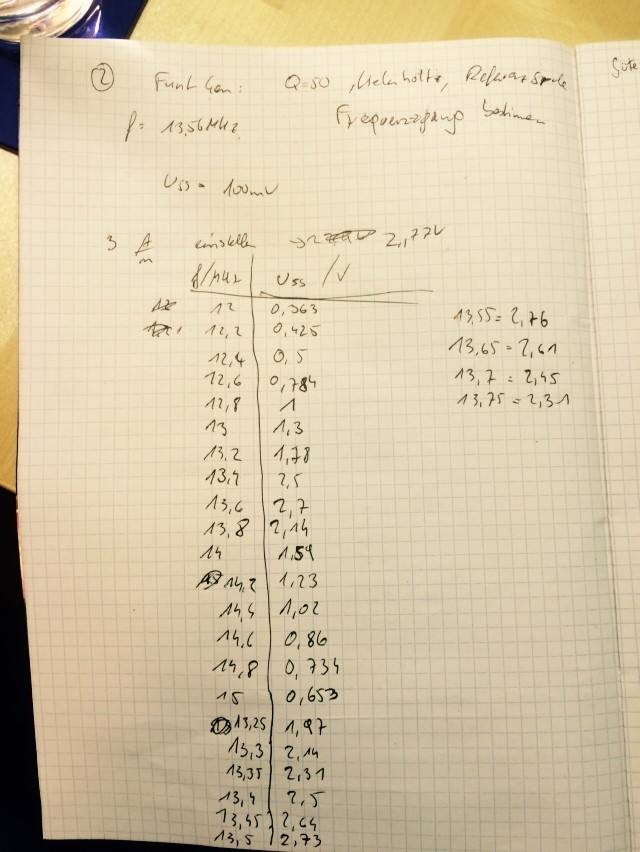 2 Funktion: Q=50, Helmholtz, Referenzspule
f = 13,56 MHz Frequenzgang bestimmen
Uss = 100mV
3 A/m einstellen → 2,77V
f/MHz Uss /V
12 0,363
12,2 0,425
12,4 0,5
12,6 0,784
12,8 1
13 1,3
13,2 1,78
13,4 2,5
13,6 2,7
13,8 2,14
14 1,54
14,2 1,23
14,4 1,02
14,6 0,86
14,8 0,734
15 0,653
13,25 1,97
13,3 2,14
13,35 2,31
13,4 2,5
13,45 2,64
13,5 2,73
13,55 = 2,76
13,65 = 2,61
13,7 = 2,45
13,75 = 2,31
Güte